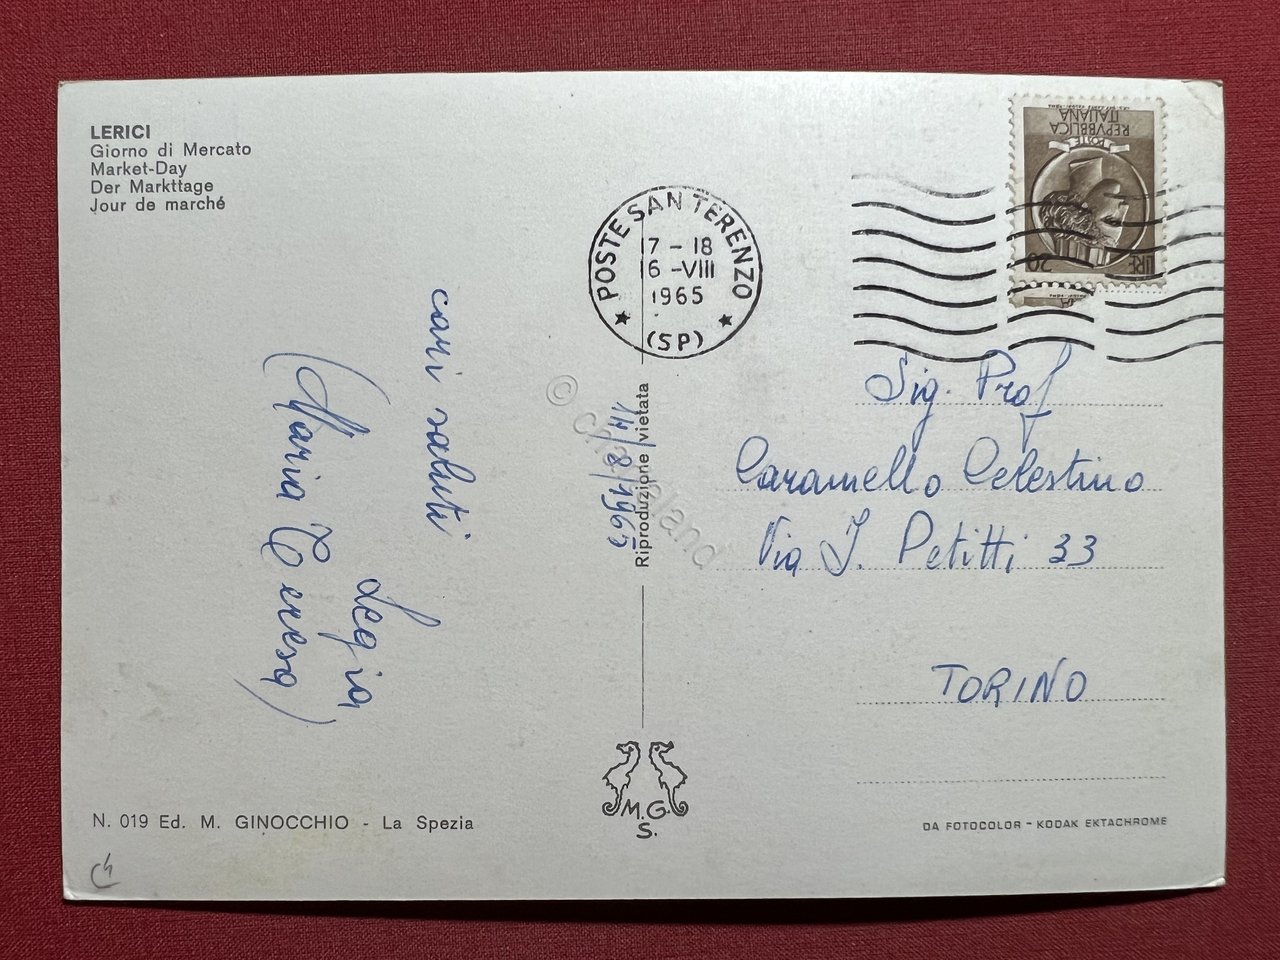 LERICI
Giorno di Mercato
Market-Day
Der Markttage
Jour de marché
POSTE SAN TERENZO
17-18
16-VIII
1965
(SP)
REPVBBLICA
ITALIANA
POSTE
LIRE 20
cari saluti
(Maria Teresa)
14/8/1965
Riproduzione vietata
Sig. Prof
Caramello Celestino
Via I. Petitti 33
TORINO
M.G.
S.
N. 019 Ed. M. GINOCCHIO - La Spezia
DA FOTOCOLOR - KODAK EKTACHROME